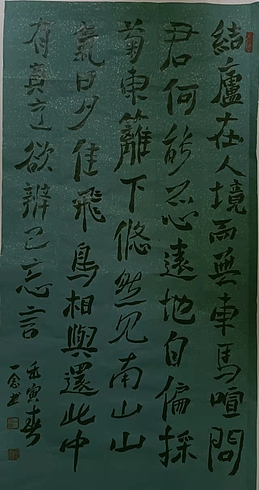 結廬在人境而無車馬喧問
君何能尔心遠地自偏採
菊東籬下悠然见南山山
氣日夕佳飛鳥相與還此中
有真意欲辨已忘言
壬寅春